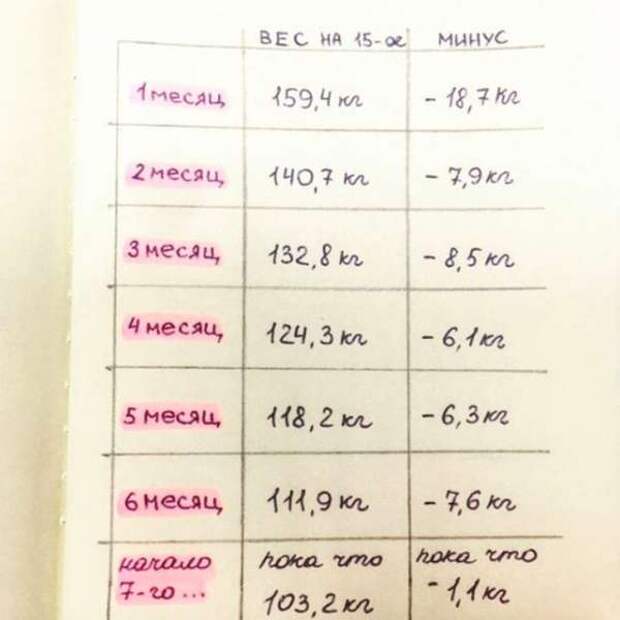 ВЕС НА 15-ое МИНУС
1 месяц 159,4 кг - 18,7 кг
2 месяц 140,7 кг - 7,9 кг
3 месяц 132,8 кг - 8,5 кг
4 месяц 124,3 кг - 6,1 кг
5 месяц 118,2 кг - 6,3 кг
6 месяц 111,9 кг - 7,6 кг
начало пока что пока что
7-го... 103,2 кг - 1,1 кг